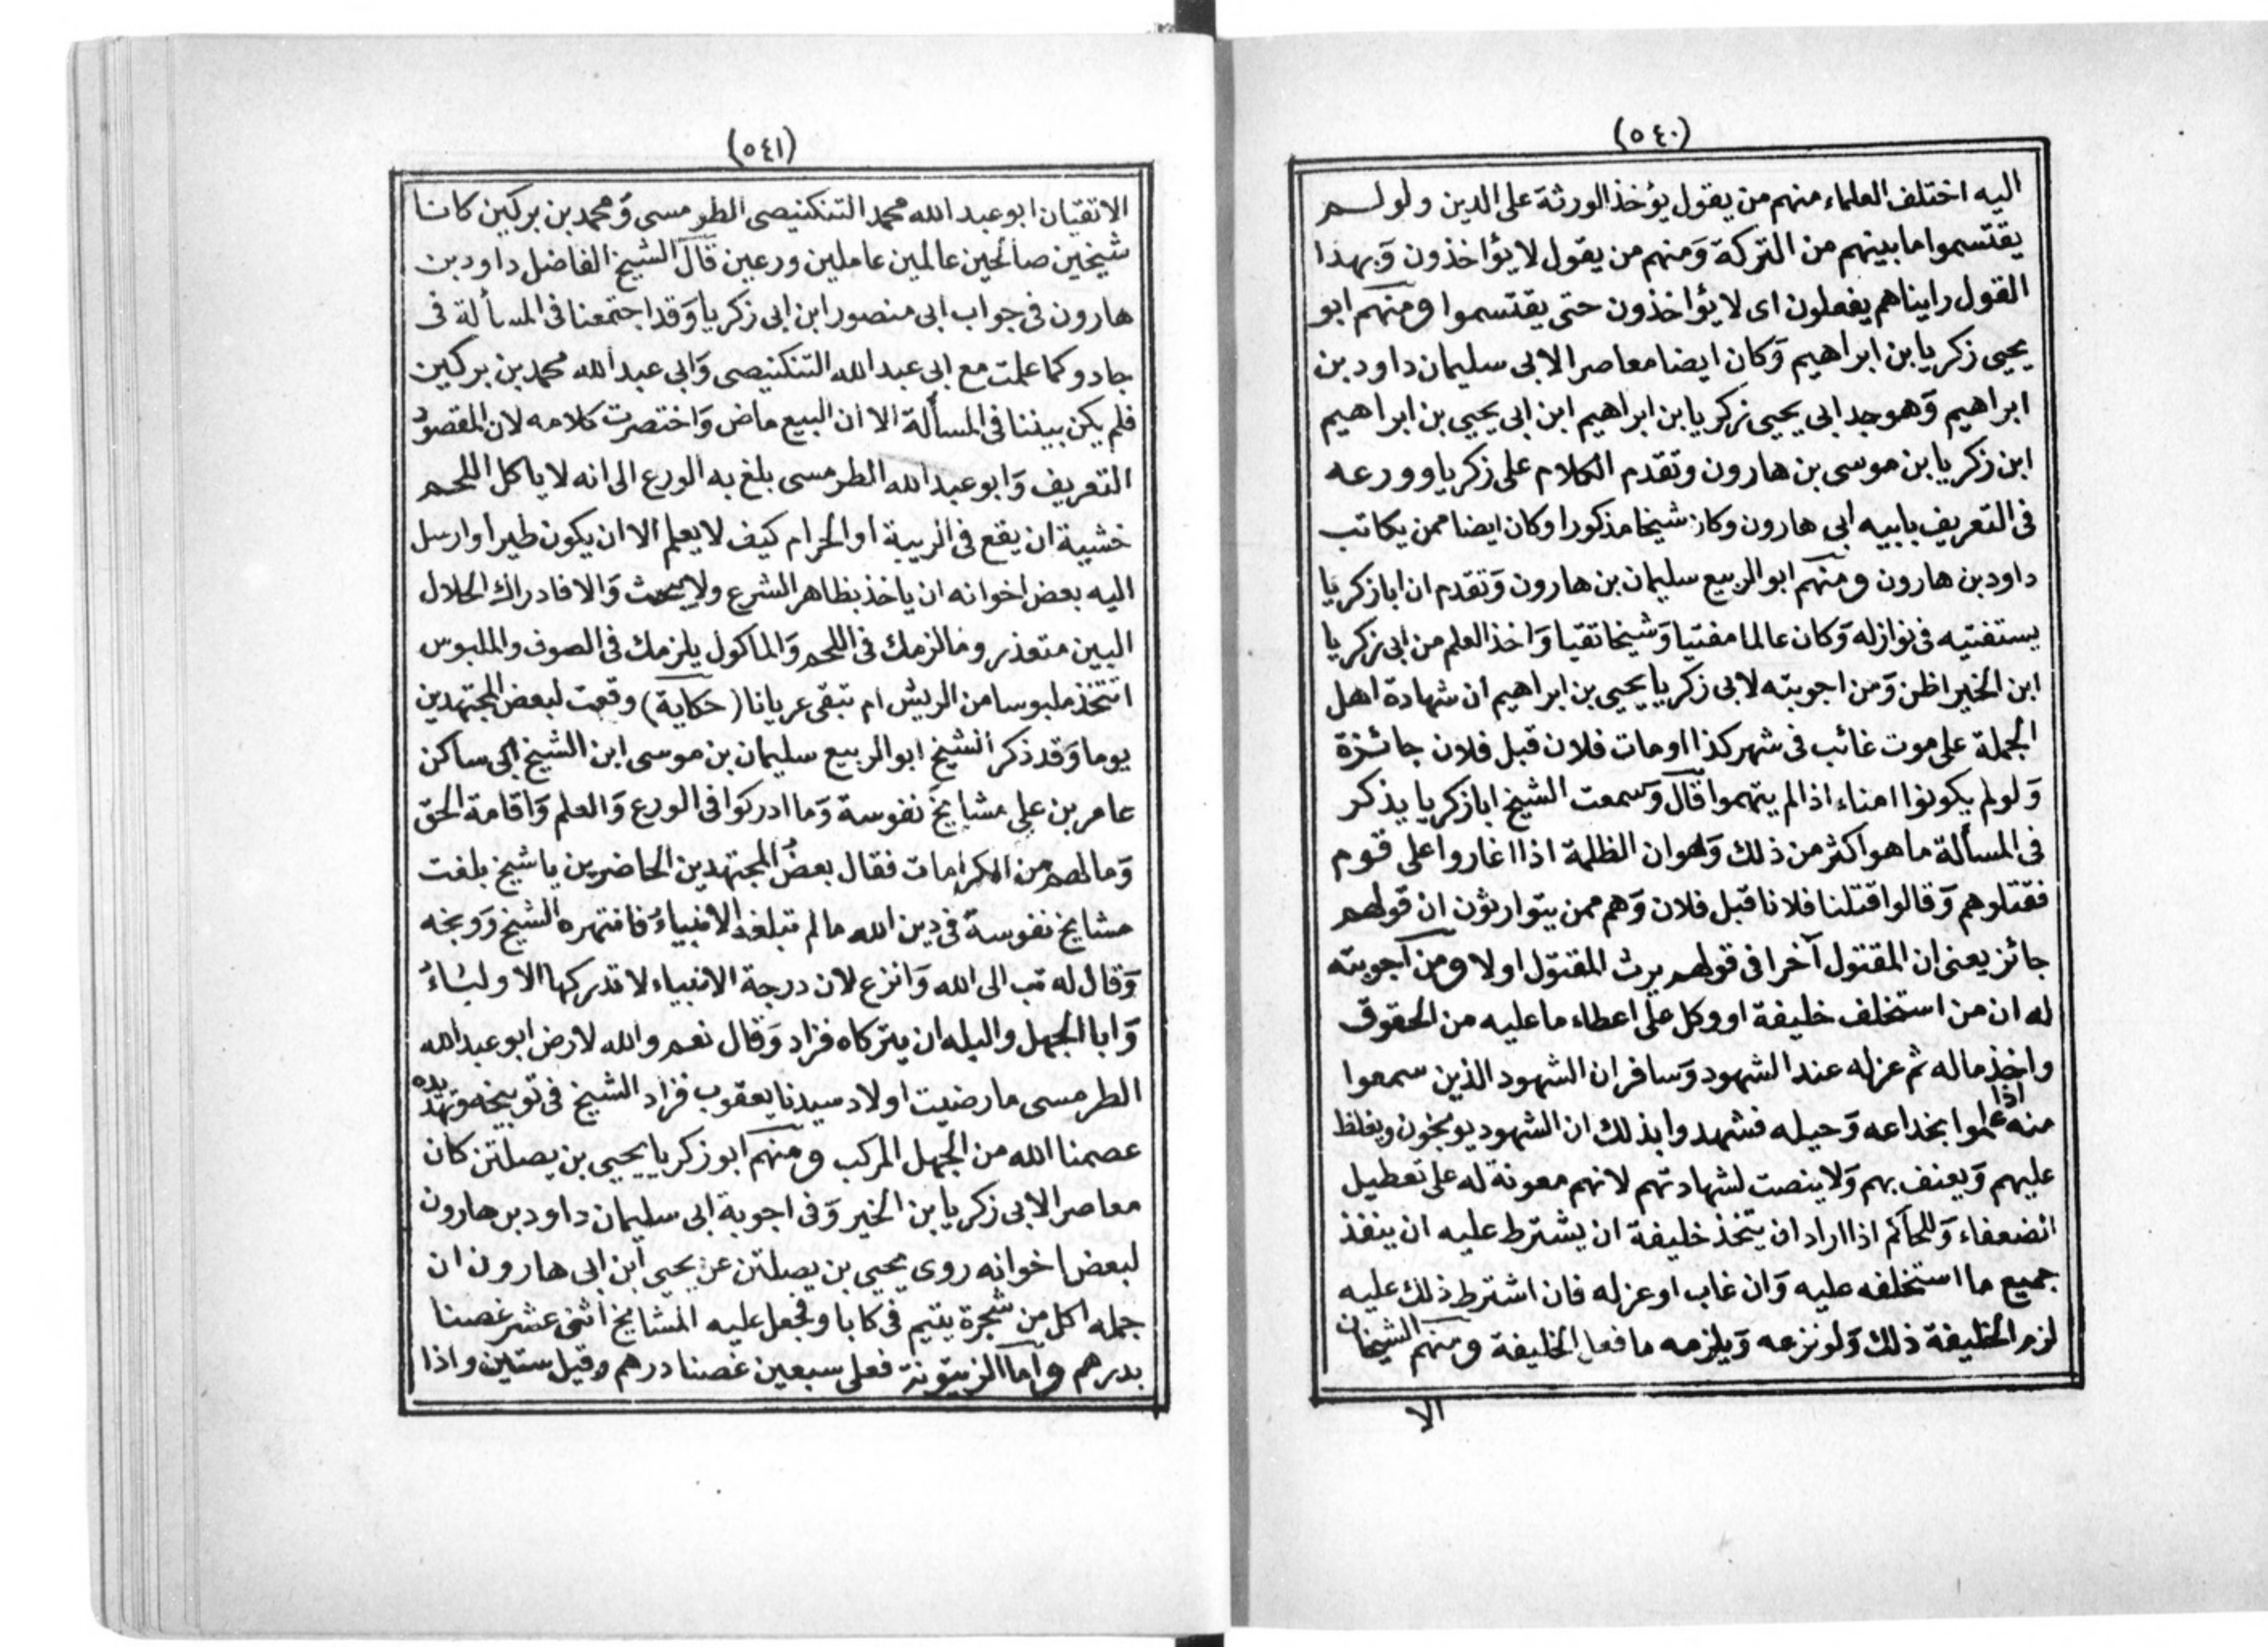 (٥٤٠)
اليه اختلف العلماء منهم من يقول يؤخذ الورثة على الدين ولو لم
يقتسموا ما بينهم من التركة وَمنهم من يقول لا يؤاخذون وَبهذا
القول رايناهم يفعلون اى لا يؤاخذون حتى يقتسموا ومنهم ابو
يحيى زكريا بن ابراهيم وَكان ايضا معاصر الابى سليمان داود بن
ابراهيم وَهو جد ابى يحيى زكريا بن ابراهيم ابن ابى يحيى بن ابراهيم
ابن زكريا بن موسى بن هارون وتقدم الكلام على زكريا وورعه
فى التعريف بابيه ابى هارون وكان شيخا مذكورا وكان ايضا ممن يكاتب
داود بن هارون ومنهم ابو الربيع سليمان بن هارون وَتقدم ان ابا زكريا
يستفتيه فى نوازله وَكان عالما مفتيا وَشيخا تقيا وَاخذ العلم من ابى زكريا
ابن الخير اظن وَمن اجوبته لابى زكريا يحيى بن ابراهيم ان شهادة اهل
الجملة على موت غائب فى شهر كذا او مات فلان قبل فلان جائزة
وَلو لم يكونوا امناء اذا لم يتهموا قال وَسمعت الشيخ ابا زكريا يذكر
فى المسألة ما هو اكثر من ذلك وَهو ان الظلمة اذا اغاروا على قوم
فقتلوهم وَقالوا قتلنا فلانا قبل فلان وَهم ممن يتوارثون ان قولهم
جائز يعنى ان المقتول آخرا فى قولهم يرث المقتول اولا ومن اجوبته
له ان من استخلف خليفة او وكل على اعطاء ما عليه من الحقوق
واخذ ماله ثم عزله عند الشهود وَسافر ان الشهود الذين سمعوا
منه اذا علموا بخداعه وَحيله فشهدوا بذلك ان الشهود يوبخون ويغلظ
عليهم وَيعنف بهم وَلا ينصت لشهادتهم لانهم معونة له على تعطيل
الضعفاء وَللحاكم اذا اراد ان يتخذ خليفة ان يشترط عليه ان ينفذ
جميع ما استخلفه عليه وَان غاب او عزله فان اشترط ذلك عليه
لزم الخليفة ذلك وَلو نزعه وَيلزمه ما فعل الخليفة ومنهم الشيخان
الا
(٥٤١)
الاتقيان ابو عبد الله محمد التنكنيصى الطرمسى وَمحمد بن بركين كانا
شيخين صالحين عالمين عاملين ورعين قال الشيخ الفاضل داود بن
هارون فى جواب ابى منصور ابن ابى زكريا وَقد اجتمعنا فى المسألة فى
جادو كما علمت مع ابى عبد الله التنكنيصى وَابى عبد الله محمد بن بركين
فلم يكن بيننا فى المسألة الا ان البيع ماض وَاختصرت كلامه لان المقصود
التعريف وَابو عبد الله الطرمسى بلغ به الورع الى انه لا ياكل اللحم
خشية ان يقع فى الريبة او الحرام كيف لا يعلم الا ان يكون طيرا وارسل
اليه بعض اخوانه ان ياخذ بظاهر الشرع ولا يبحث وَالا فادراك الحلال
البين متعذر وما لزمك فى اللحم وَالماكول يلزمك فى الصوف والملبوس
اتتخذ ملبوسا من الريش ام تبقى عريانا (حكاية) وقعت لبعض المجتهدين
يوما وَقد ذكر الشيخ ابو الربيع سليمان بن موسى ابن الشيخ ابى ساكن
عامر بن على مشايخ نفوسة وَما ادركوا فى الورع وَالعلم وَاقامة الحق
وَما لهم من الكرامات فقال بعض المجتهدين الحاضرين يا شيخ بلغت
مشايخ نفوسة فى دين الله ما لم تبلغه الانبياء فانتهره الشيخ وَوبخه
وَقال له تب الى الله وَانزع لان درجة الانبياء لا تدركها الاولياء
وَابا الجهل والبله ان يتركاه فزاد وَقال نعم والله لارض ابو عبد الله
الطرمسى ما رضيت اولاد سيدنا يعقوب فزاد الشيخ فى توبيخه وتهديده
عصمنا الله من الجهل المركب ومنهم ابو زكريا يحيى بن يصلتن كان
معاصر الابى زكريا بن الخير وَفى اجوبة ابى سليمان داود بن هارون
لبعض اخوانه روى يحيى بن يصلتن عن يحيى ابن ابى هارون ان
جمله اكل من شجرة يتيم فى كاباو فجعل عليه المشايخ اثنى عشر غصنا
بدرهم واما الزيتونة فعلى سبعين غصنا درهم وقيل ستين واذا